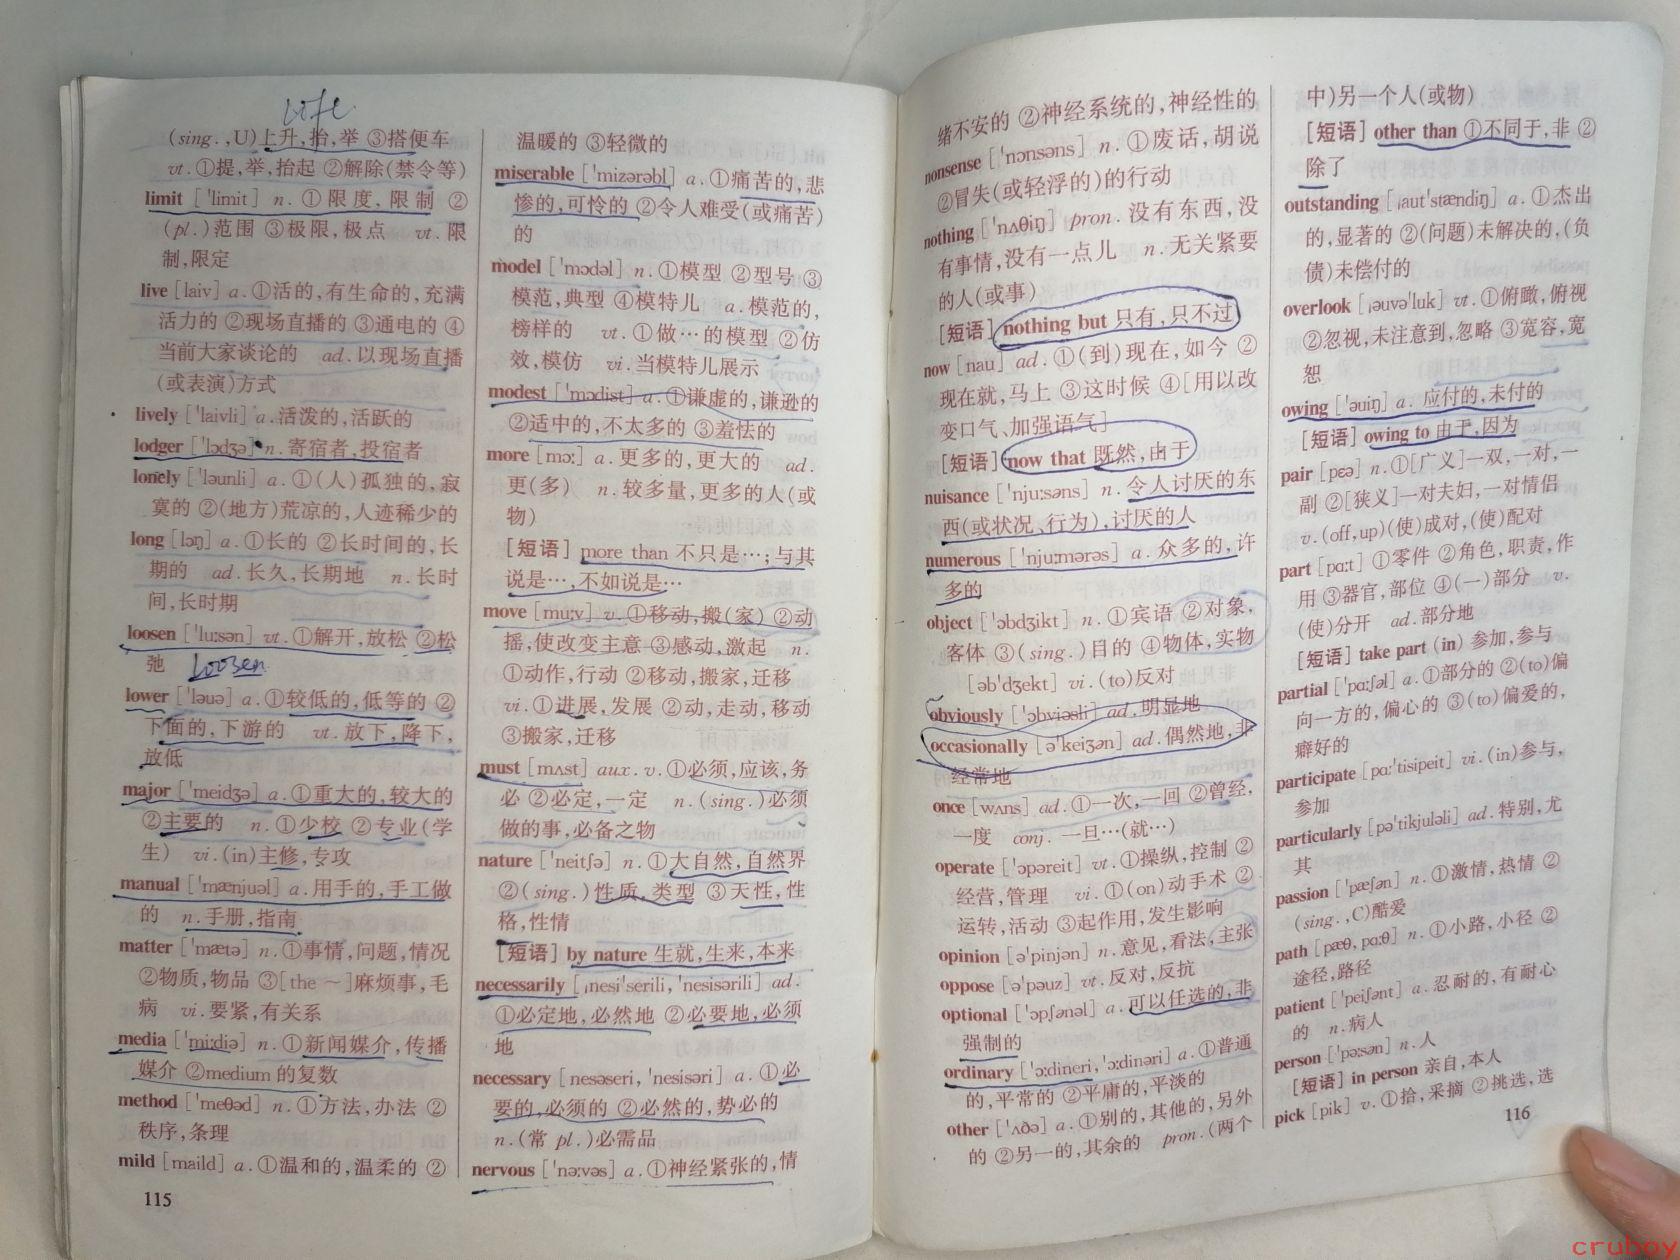 life
(sing.,U)上升,抬,举 ③搭便车
vt.①提,举,抬起 ②解除(禁令等)
limit ['limit] n.①限度,限制 ②
(pl.)范围 ③极限,极点 vt.限
制,限定
live [laiv] a.①活的,有生命的,充满
活力的 ②现场直播的 ③通电的 ④
当前大家谈论的 ad.以现场直播
(或表演)方式
lively ['laivli] a.活泼的,活跃的
lodger ['lɔdʒə] n.寄宿者,投宿者
lonely ['ləunli] a.①(人)孤独的,寂
寞的 ②(地方)荒凉的,人迹稀少的
long [lɔŋ] a.①长的 ②长时间的,长
期的 ad.长久,长期地 n.长时
间,长时期
loosen ['lu:sən] vt.①解开,放松 ②松
弛 loosen
lower ['ləuə] a.①较低的,低等的 ②
下面的,下游的 vt.放下,降下,
放低
major ['meidʒə] a.①重大的,较大的
②主要的 n.①少校 ②专业(学
生) vi.(in)主修,专攻
manual ['mænjuəl] a.用手的,手工做
的 n.手册,指南
matter ['mætə] n.①事情,问题,情况
②物质,物品 ③[the ~]麻烦事,毛
病 vi.要紧,有关系
media ['mi:diə] n.①新闻媒介,传播
媒介 ②medium 的复数
method ['meθəd] n.①方法,办法 ②
秩序,条理
mild [maild] a.①温和的,温柔的 ②
115
温暖的 ③轻微的
miserable ['mizərəbl] a.①痛苦的,悲
惨的,可怜的 ②令人难受(或痛苦)
的
model ['mɔdəl] n.①模型 ②型号 ③
模范,典型 ④模特儿 a.模范的,
榜样的 vt.①做…的模型 ②仿
效,模仿 vi.当模特儿展示
modest ['mɔdist] a.①谦虚的,谦逊的
②适中的,不太多的 ③羞怯的
more [mɔ:] a.更多的,更大的 ad.
更(多) n.较多量,更多的人(或
物)
[短语] more than 不只是…;与其
说是…,不如说是…
move [mu:v] v.①移动,搬(家) ②动
摇,使改变主意 ③感动,激起 n.
①动作,行动 ②移动,搬家,迁移
vi.①进展,发展 ②动,走动,移动
③搬家,迁移
must [mʌst] aux.v.①必须,应该,务
必 ②必定,一定 n.(sing.)必须
做的事,必备之物
nature ['neitʃə] n.①大自然,自然界
②(sing.)性质,类型 ③天性,性
格,性情
[短语] by nature 生就,生来,本来
necessarily [ˌnesi'serili, 'nesisərili] ad.
①必定地,必然地 ②必要地,必须
地
necessary [nesəseri, 'nesisəri] a.①必
要的,必须的 ②必然的,势必的
n.(常 pl.)必需品
nervous ['nə:vəs] a.①神经紧张的,情
绪不安的 ②神经系统的,神经性的
nonsense ['nɔnsəns] n.①废话,胡说
②冒失(或轻浮的)的行动
nothing ['nʌθiŋ] pron.没有东西,没
有事情,没有一点儿 n.无关紧要
的人(或事)
[短语] nothing but 只有,只不过
now [nau] ad.①(到)现在,如今 ②
现在就,马上 ③这时候 ④[用以改
变口气、加强语气]
[短语] now that 既然,由于
nuisance ['nju:səns] n.令人讨厌的东
西(或状况、行为),讨厌的人
numerous ['nju:mərəs] a.众多的,许
多的
object ['ɔbdʒikt] n.①宾语 ②对象,
客体 ③(sing.)目的 ④物体,实物
[əb'dʒekt] vi.(to)反对
obviously ['ɔbviəsli] ad.明显地
occasionally [ə'keiʒən] ad.偶然地,非
经常地
once [wʌns] ad.①一次,一回 ②曾经,
一度 conj.一旦…(就…)
operate ['ɔpəreit] vt.①操纵,控制 ②
经营,管理 vi.①(on)动手术 ②
运转,活动 ③起作用,发生影响
opinion [ə'pinjən] n.意见,看法,主张
oppose [ə'pəuz] vt.反对,反抗
optional ['ɔpʃənəl] a.可以任选的,非
强制的
ordinary ['ɔ:dineri, 'ɔ:dinəri] a.①普通
的,平常的 ②平庸的,平淡的
other ['ʌðə] a.①别的,其他的,另外
的 ②另一的,其余的 pron.(两个
中)另一个人(或物)
[短语] other than ①不同于,非 ②
除了
outstanding [ˌaut'stændiŋ] a.①杰出
的,显著的 ②(问题)未解决的,(负
债)未偿付的
overlook [ˌəuvə'luk] vt.①俯瞰,俯视
②忽视,未注意到,忽略 ③宽容,宽
恕
owing ['əuiŋ] a.应付的,未付的
[短语] owing to 由于,因为
pair [pɛə] n.①[广义]一双,一对,一
副 ②[狭义]一对夫妇,一对情侣
v.(off,up)(使)成对,(使)配对
part [pɑ:t] ①零件 ②角色,职责,作
用 ③器官,部位 ④(一)部分 v.
(使)分开 ad.部分地
[短语] take part (in) 参加,参与
partial ['pɑ:ʃəl] a.①部分的 ②(to)偏
向一方的,偏心的 ③(to)偏爱的,
癖好的
participate [pɑ:'tisipeit] vi.(in)参与,
参加
particularly [pə'tikjuləli] ad.特别,尤
其
passion ['pæʃən] n.①激情,热情 ②
(sing.,C)酷爱
path [pæθ, pɑ:θ] n.①小路,小径 ②
途径,路径
patient ['peiʃənt] a.忍耐的,有耐心
的 n.病人
person ['pə:sən] n.人
[短语] in person 亲自,本人
pick [pik] v.①拾,采摘 ②挑选,选
116
cruboy